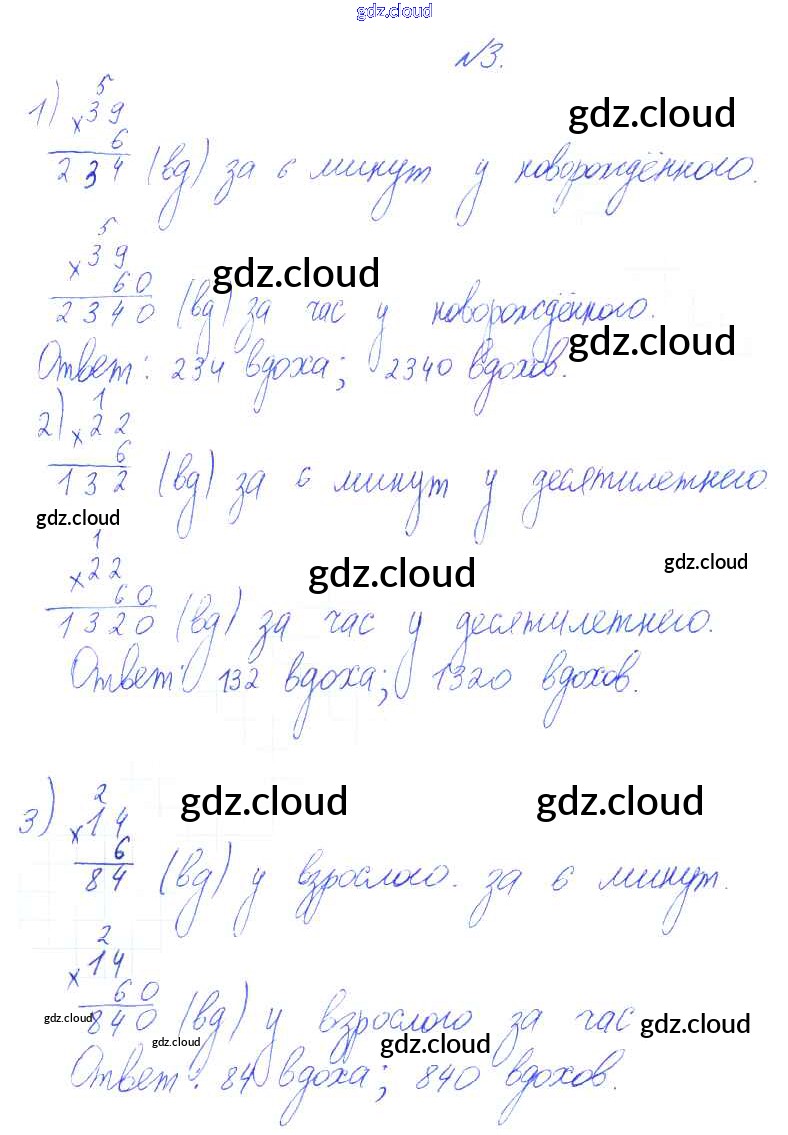 gdz.cloud
№3.
5
1) ×39 gdz.cloud
6
234 (вд) за 6 минут у новорождённого.
5
×39 gdz.cloud
60
2340 (вд) за час у новорождённого.
gdz.cloud
Ответ: 234 вдоха; 2340 вдохов.
1
2) ×22
6
132 (вд) за 6 минут у десятилетнего
gdz.cloud
1
×22 gdz.cloud gdz.cloud
60
1320 (вд) за час у десятилетнего.
Ответ: 132 вдоха; 1320 вдохов.
2 gdz.cloud gdz.cloud
3) ×14
6
84 (вд) у взрослого. за 6 минут.
2
×14
60
gdz.cloud 840 (вд) у взрослого за час gdz.cloud
gdz.cloud gdz.cloud
Ответ: 84 вдоха; 840 вдохов.